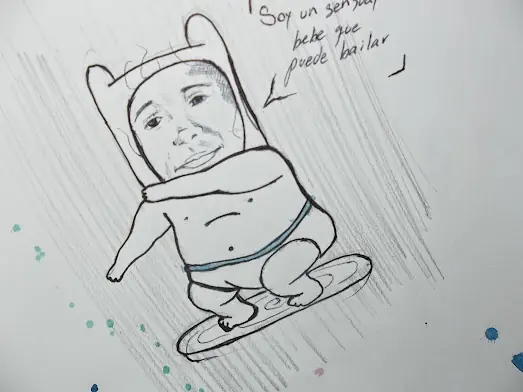 Soy un sensual
bebe que
puede bailar